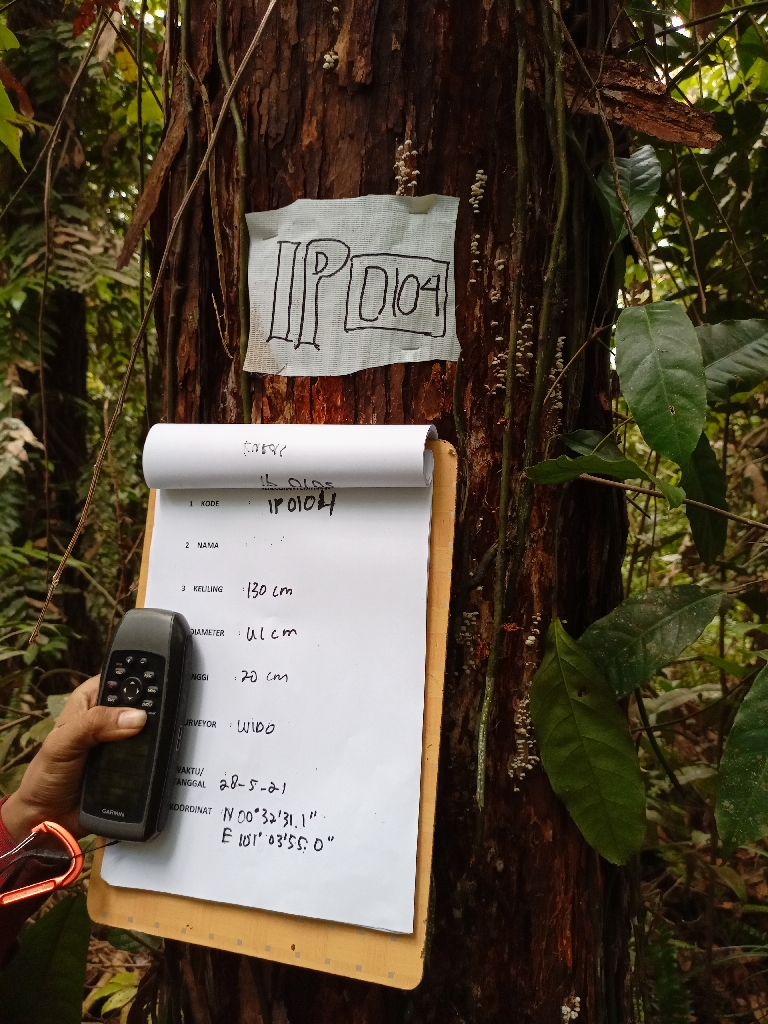 IPD 0104
IP 0105
1 KODE : IP 0104
2 NAMA :
3 KELILING : 130 cm
DIAMETER : 41 cm
NGGI : 20 cm
URVEYOR : WIDO
WAKTU/
TANGGAL 28-5-21
KOORDINAT N 00° 32' 31.1"
E 101° 03' 55.0"
GARMIN